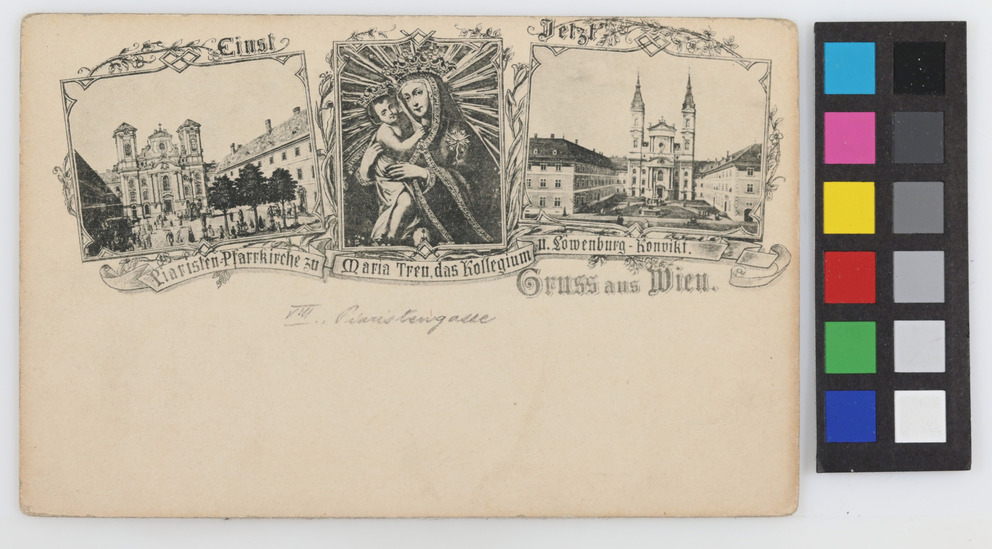 Einst
Jetzt
Piaristen-Pfarrkirche zu
Maria Treu, das Kollegium
u. Löwenburg-Konvikt.
Gruss aus Wien.
VIII., Piaristengasse